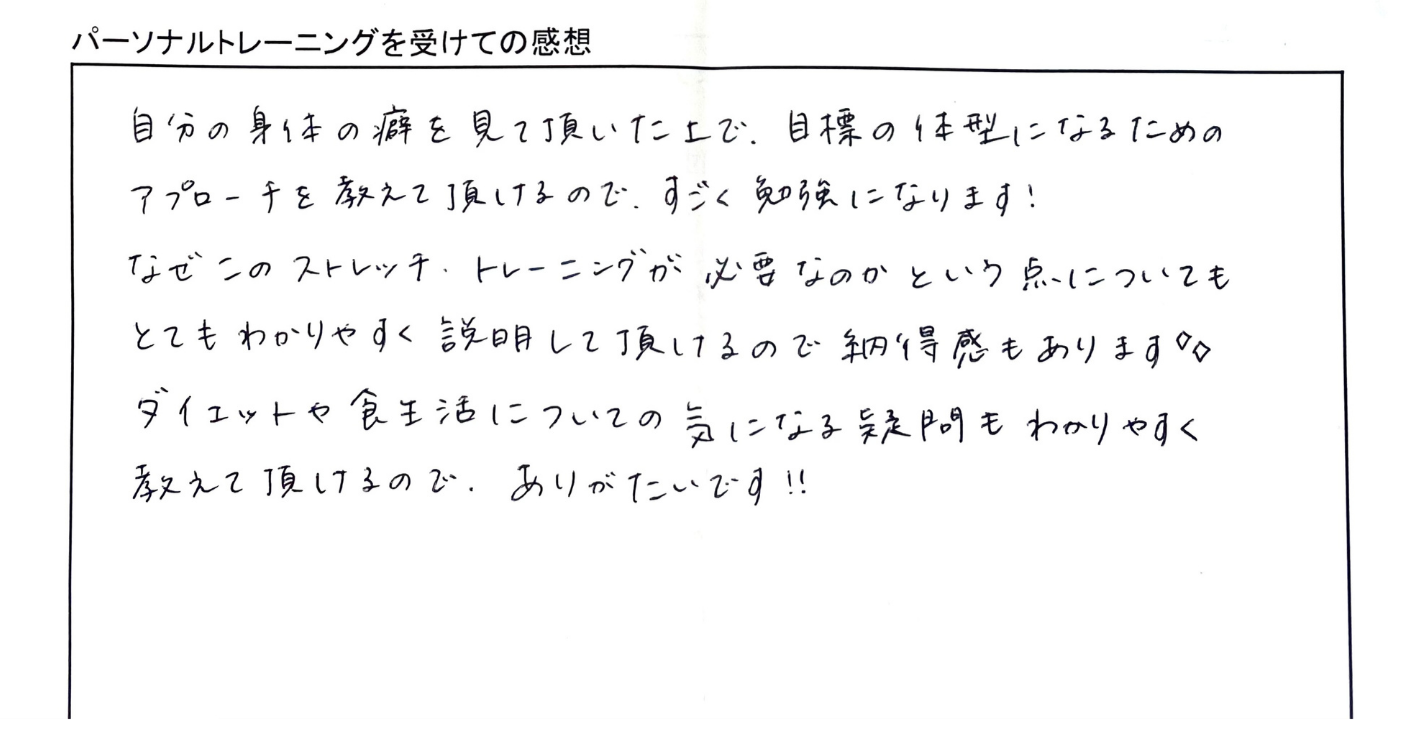 パーソナルトレーニングを受けての感想
自分の身体の癖を見て頂いた上で、目標の体型になるための
アプローチを教えて頂けるので、すごく勉強になります!
なぜこのストレッチ・トレーニングが必要なのかという点についても
とてもわかりやすく説明して頂けるので納得感もあります◇◇
ダイエットや食生活についての気になる疑問もわかりやすく
教えて頂けるので、ありがたいです!!